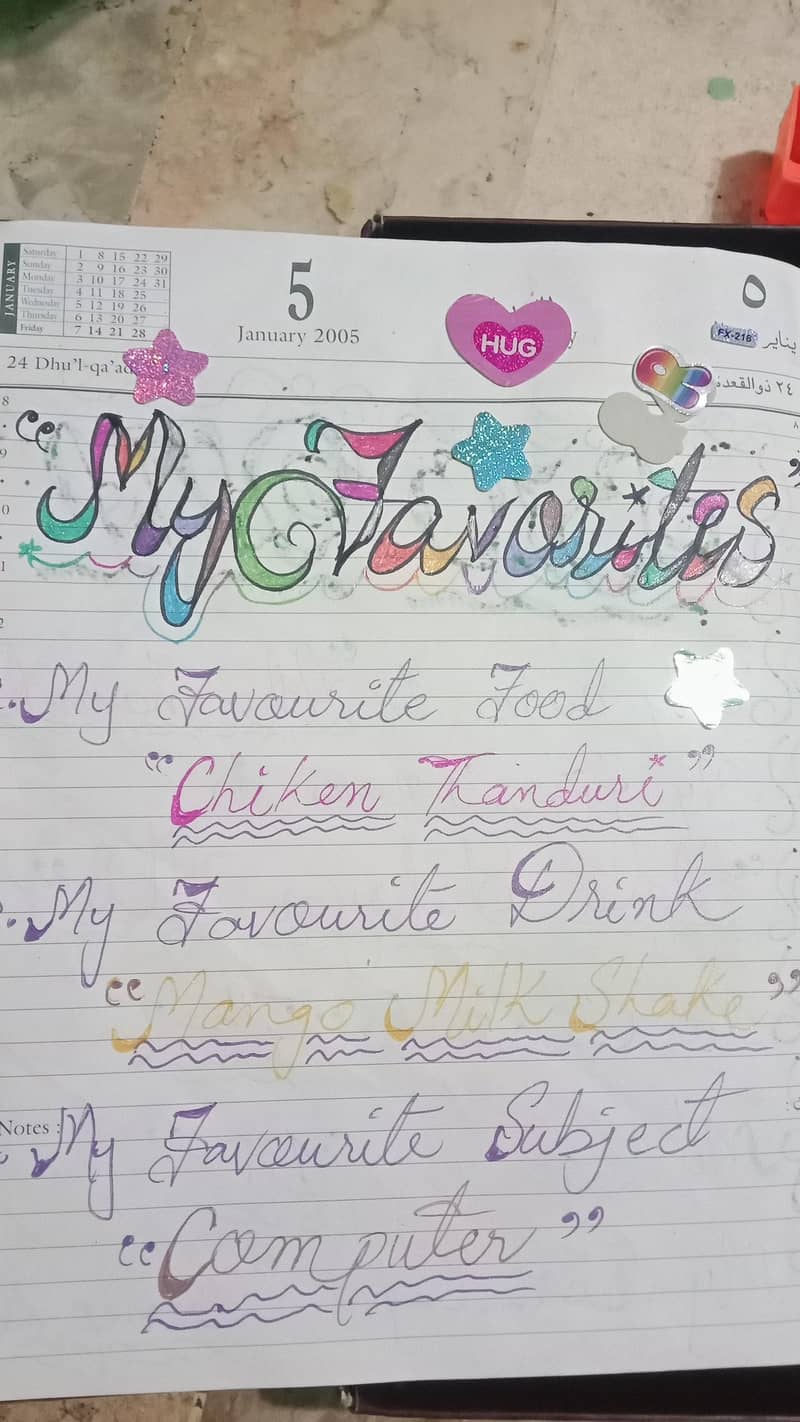 JANUARY
Saturday 1 8 15 22 29
Sunday 2 9 16 23 30
Monday 3 10 17 24 31
Tuesday 4 11 18 25
Wednesday 5 12 19 26
Thursday 6 13 20 27
Friday 7 14 21 28
5
January 2005
٥
يناير
24 Dhu'l-qa'
٢٤ ذوالقعدة
HUG
FX-216
8
9
0
1
2
“My Favorites”
My Favourite Food
“Chiken Thanduri”
My Favourite Drink
“Mango Milk Shake”
Notes :
My Favourite Subject
“Computer”